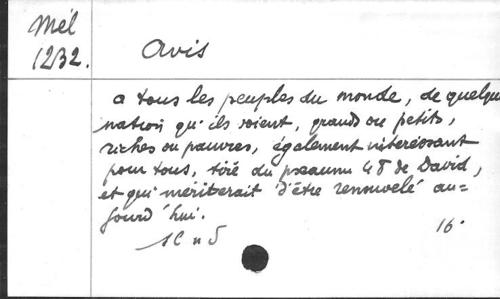 Mél
1232.
Avis
a tous les peuples du monde, de quelqu
nation qu'ils soient, grands ou petits,
riches ou pauvres, également interéssant
pour tous, tiré du pseaume 48 de David,
et qui mériterait d'être renouvelé au=
jourd'hui.
16.